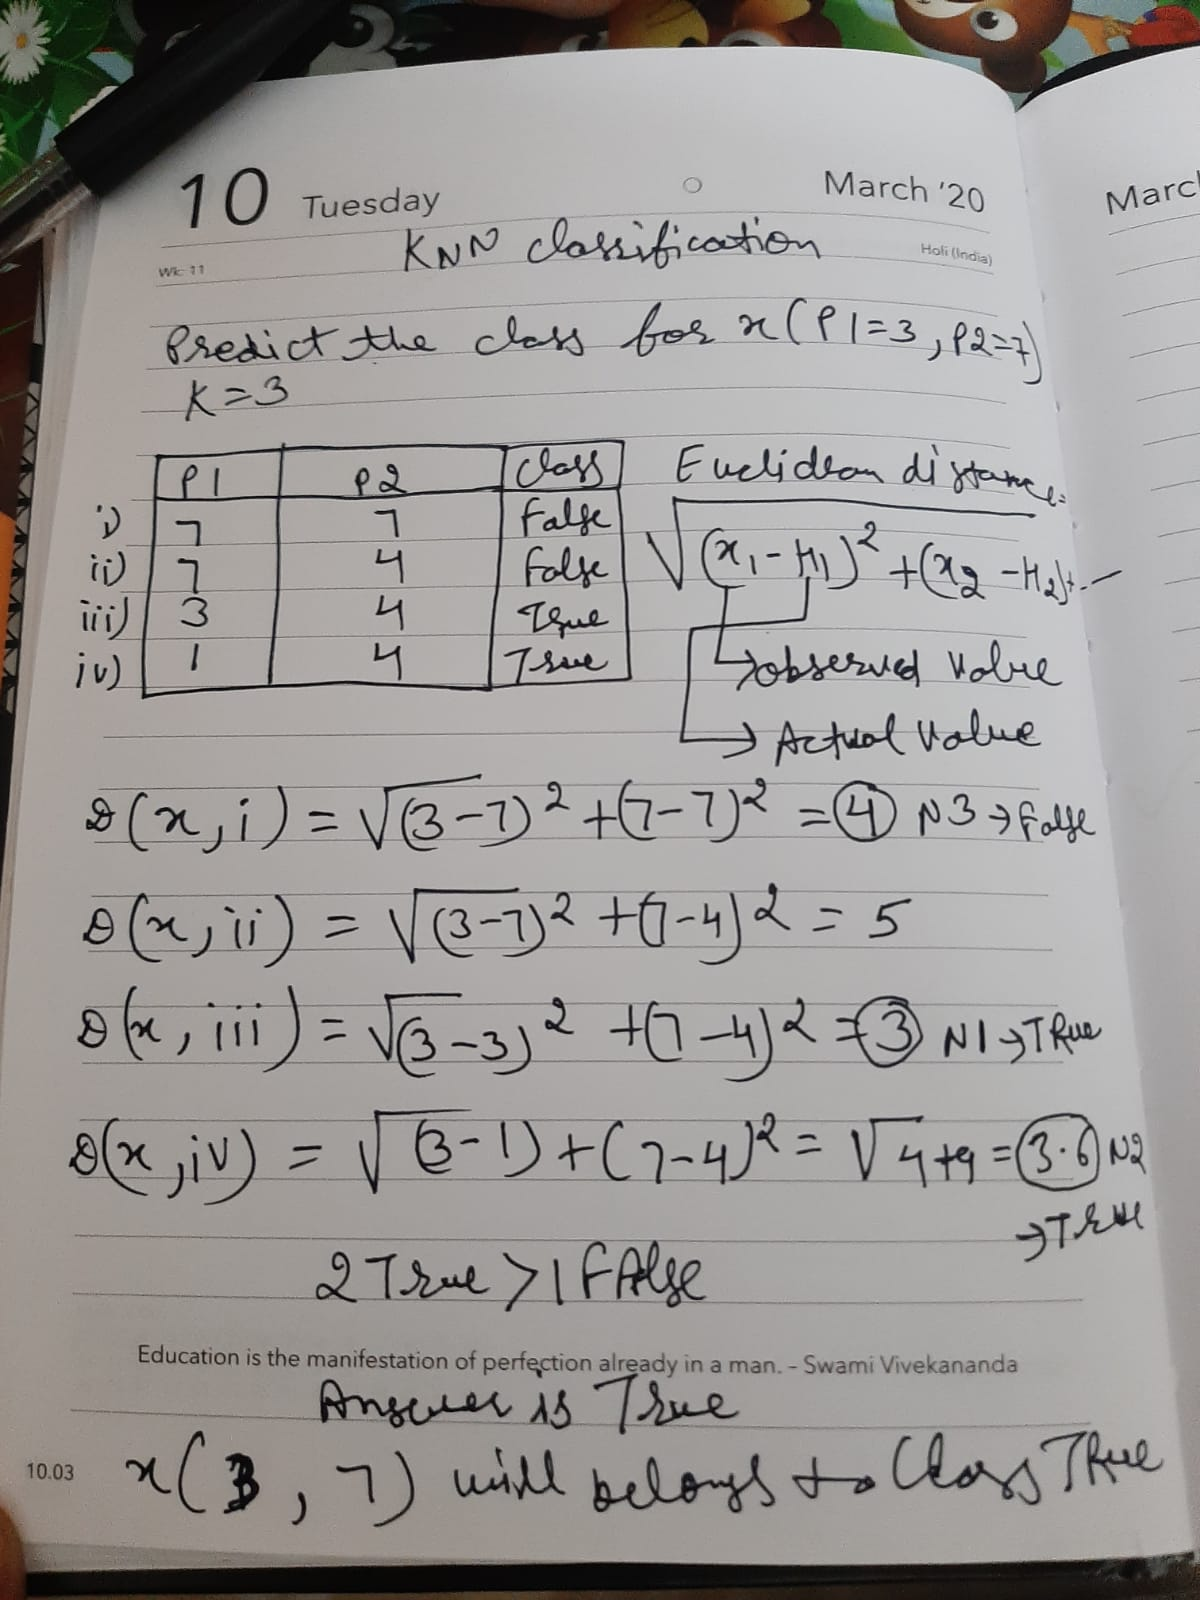 10 Tuesday March '20
Marc
KNN classification
Wk 11 Holi (India)
Predict the class for x(P1=3, P2=7)
K=3
P1 P2 Class
i) 7 7 False
ii) 7 4 False
iii) 3 4 True
iv) 1 4 True
Euclidean distance=
√(x₁-H₁)² + (x₂-H₂)+--
→observed Value
→ Actual Value
D(x,i) = √(3-7)² + (7-7)² = 4 N3→False
D(x,ii) = √(3-7)² + (7-4)² = 5
D(x,iii) = √(3-3)² + (7-4)² = 3 N1→TRue
D(x,iv) = √(3-1)+(7-4)² = √4+9 = 3.6 N2
→TRUE
2 True > 1 FAlse
Education is the manifestation of perfection already in a man. – Swami Vivekananda
Answer is True
10.03 x(3, 7) will belongs to Class TRue